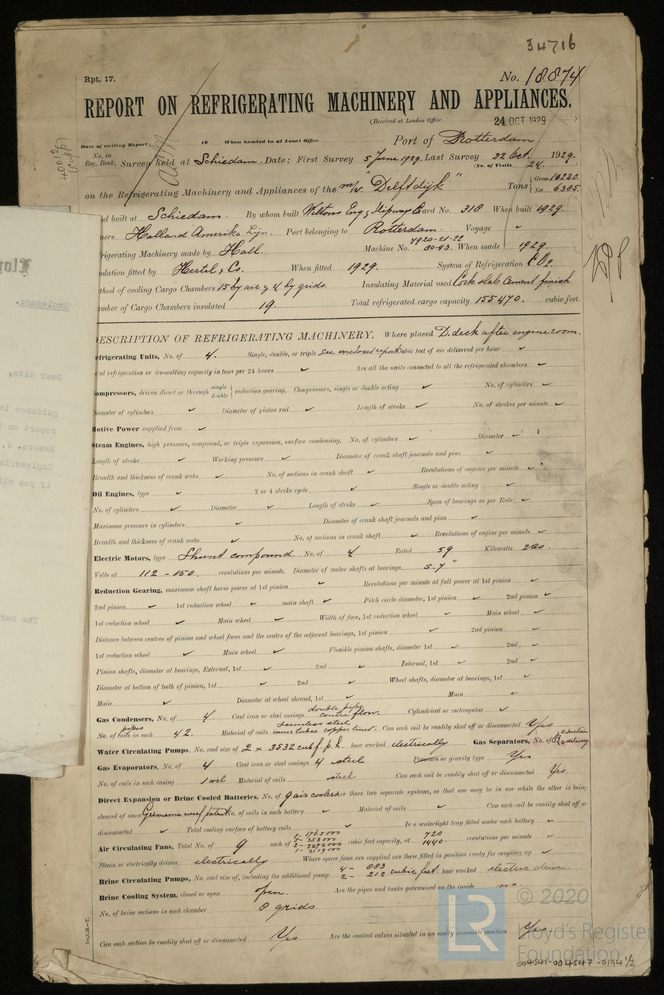 34716
Rpt. 17.
No. 18874
REPORT ON REFRIGERATING MACHINERY AND APPLIANCES.
(Received at London Office 24 OCT 1929
Date of writing Report 19 When handed in at Local Office Port of Rotterdam
No. in Reg. Book. Survey held at Schiedam. Date: First Survey 5 June 1929. Last Survey 22 Oct. 1929.
(No. of Visits 24.
on the Refrigerating Machinery and Appliances of the m/v. "Delftdijk" Tons Gross 10220. Net 6305.
el built at Schiedam. By whom built Wiltons Eng & Slipway Yard No. 318 When built 1929.
ners Holland Amerika Lijn. Port belonging to Rotterdam. Voyage "
frigerating Machinery made by Hall. Machine No. 4920-21-22 When made 1929.
ulation fitted by Hertel & Co. When fitted 1929. System of Refrigeration CO2
thod of cooling Cargo Chambers 15 by air & 4 by grids. Insulating Material used Cork slab Cement finish
mber of Cargo Chambers insulated 19. Total refrigerated cargo capacity 155470. cubic feet.
DESCRIPTION OF REFRIGERATING MACHINERY. Where placed D. deck after engine room.
efrigerating Units, No. of 4. Single, double, or triple see enclosed report Cubic feet of air delivered per hour ✓
al refrigeration or ice-melting capacity in tons per 24 hours ✓ Are all the units connected to all the refrigerated chambers ✓
ompressors, driven direct or through single double reduction gearing. Compressors, single or double acting ✓ No. of cylinders ✓
iameter of cylinders ✓ Diameter of piston rod ✓ Length of stroke ✓ No. of strokes per minute ✓
Motive Power supplied from ✓
Steam Engines, high pressure, compound, or triple expansion, surface condensing. No. of cylinders ✓ Diameter ✓
Length of stroke ✓ Working pressure ✓ Diameter of crank shaft journals and pins ✓
Breadth and thickness of crank webs ✓ No. of sections in crank shaft ✓ Revolutions of engines per minute ✓
Oil Engines, type ✓ 2 or 4 stroke cycle ✓ Single or double acting ✓
No. of cylinders ✓ Diameter ✓ Length of stroke ✓ Span of bearings as per Rule ✓
Maximum pressure in cylinders ✓ Diameter of crank shaft journals and pins ✓
Breadth and thickness of crank webs ✓ No. of sections in crank shaft ✓ Revolutions of engine per minute ✓
Electric Motors, type Shunt compound No. of 4 Rated 59 Kilowatts 220
Volts at 112 - 150. revolutions per minute. Diameter of motor shafts at bearings 5.7"
Reduction Gearing, maximum shaft horse power at 1st pinion ✓ Revolutions per minute at full power at 1st pinion ✓
2nd pinion ✓ 1st reduction wheel ✓ main shaft ✓ Pitch circle diameter, 1st pinion ✓ 2nd pinion ✓
1st reduction wheel ✓ Main wheel ✓ Width of face, 1st reduction wheel ✓ Main wheel ✓
Distance between centres of pinion and wheel faces and the centre of the adjacent bearings, 1st pinion ✓ 2nd pinion ✓
1st reduction wheel ✓ Main wheel ✓ Flexible pinion shafts, diameter 1st ✓ 2nd ✓
Pinion shafts, diameter at bearings, External, 1st ✓ 2nd ✓ Internal, 1st ✓ 2nd ✓
Diameter at bottom of teeth of pinion, 1st ✓ 2nd ✓ Wheel shafts, diameter at bearings, 1st ✓
Main ✓ Diameter at wheel shroud, 1st ✓ Main ✓
Gas Condensers, No. of 4. Cast iron or steel casings double pipe contra flow. Cylindrical or rectangular ✓
No. of coils in each pipes 42. Material of coils seamless steel inner tubes copper lined. Can each coil be readily shut off or disconnected Yes
Water Circulating Pumps, No. and size of 2 x 3532 cub f. p. h. how worked electrically Gas Separators, No. of 8
Gas Evaporators, No. of 4 Cast iron or steel casings 4 steel Pressure or gravity type Yes
No. of coils in each casing 1 coil Material of coils steel Can each coil be readily shut off or disconnected Yes.
Direct Expansion or Brine Cooled Batteries, No. of 9 air coolers Are there two separate systems, so that one may be in use while the other is being
cleared of snow No. of coils in each battery ✓ Material of coils ✓ Can each coil be readily shut off or
disconnected ✓ Total cooling surface of battery coils ✓ Is a watertight tray fitted under each battery ✓
Air Circulating Fans, Total No. of 9 each of cubic feet capacity, at 720 1440. revolutions per minute ✓
Steam or electrically driven electrically Where spare fans are supplied are these fitted in position ready for coupling up ✓
Brine Circulating Pumps, No. and size of, including the additional pump 4 - 883 2 - 212 cubic feet how worked electric driven
Brine Cooling System, closed or open open. Are the pipes and tanks galvanised on the inside no.
No. of brine sections in each chamber 8 grids
Can each section be readily shut off or disconnected Yes Are the control valves situated in an easily accessible position Yes.
© 2020
LR
Lloyd's Register
Foundation
004541-004547-0194 1/2
Dear Sirs,
The Sur